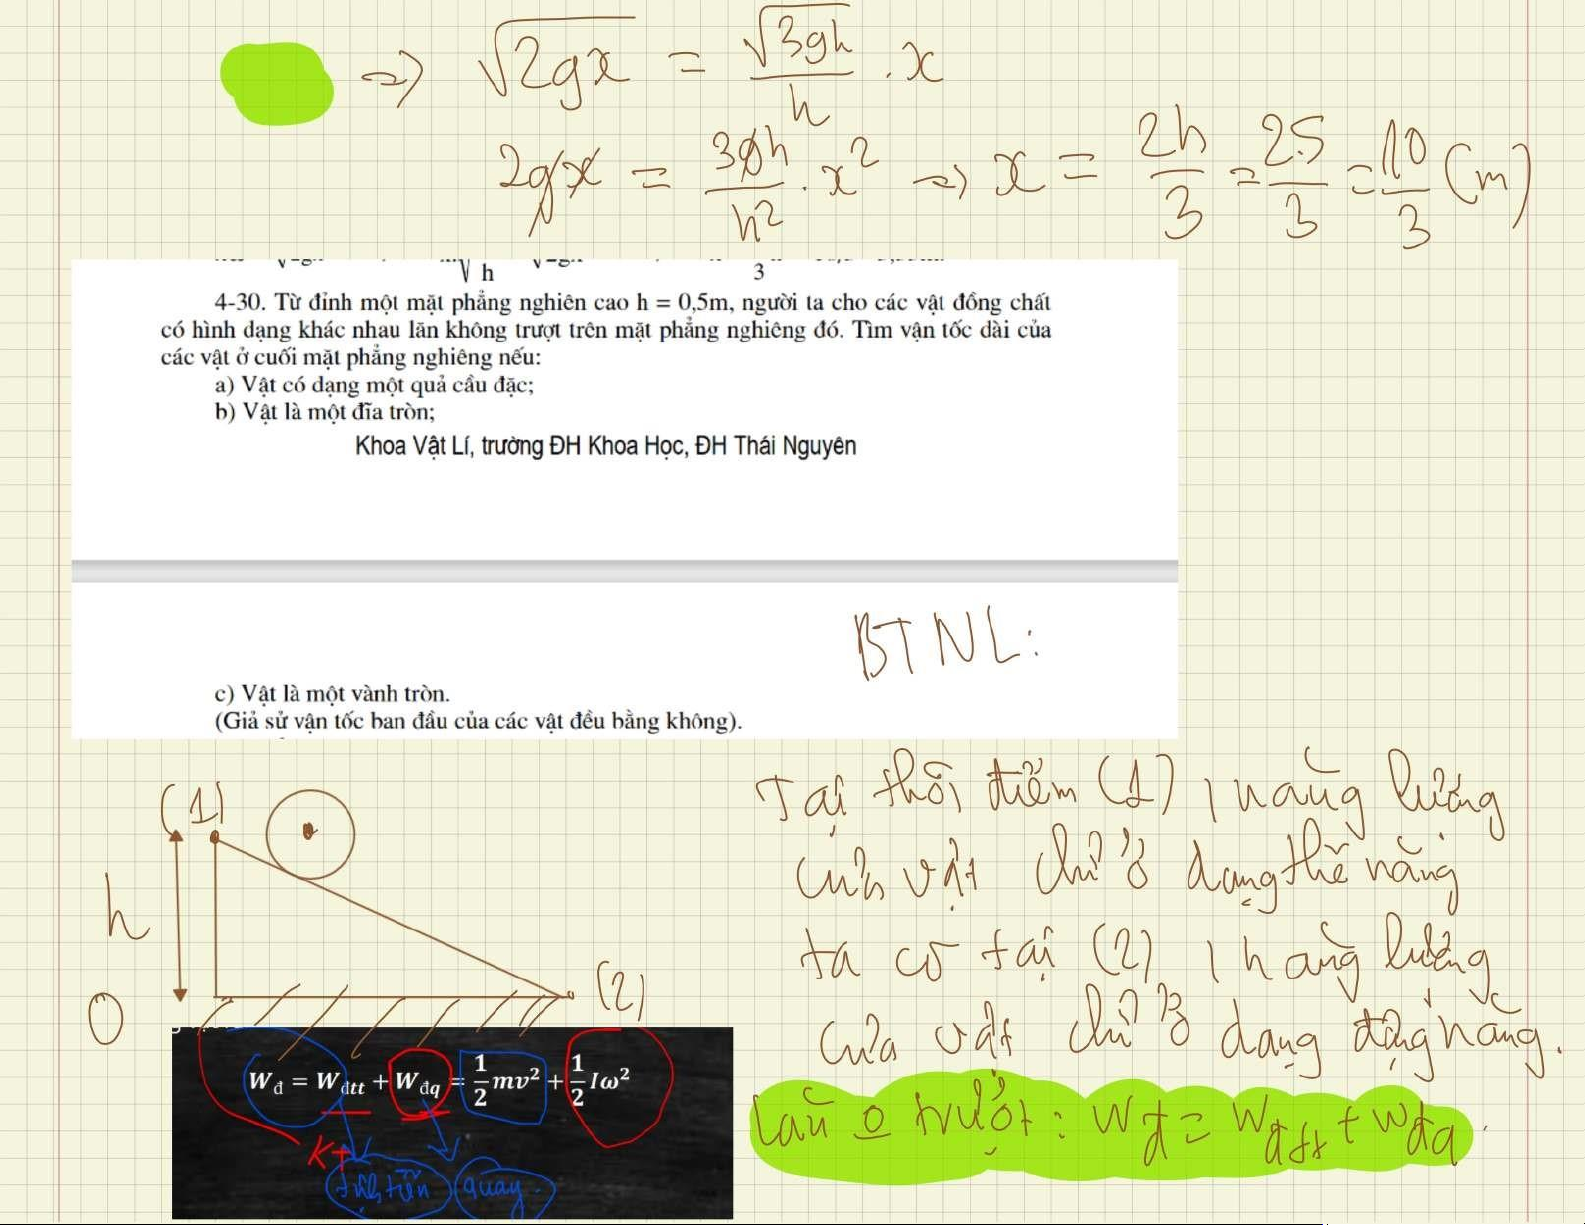 => √2gx = √3gh / h . x
2gx = 3gh / h² . x² => x = 2h / 3 = 2.5 / 3 = 10 / 3 (m)
h
3
4-30. Từ đỉnh một mặt phẳng nghiên cao h = 0,5m, người ta cho các vật đồng chất
có hình dạng khác nhau lăn không trượt trên mặt phẳng nghiêng đó. Tìm vận tốc dài của
các vật ở cuối mặt phẳng nghiêng nếu:
a) Vật có dạng một quả cầu đặc;
b) Vật là một đĩa tròn;
Khoa Vật Lí, trường ĐH Khoa Học, ĐH Thái Nguyên
BTNL:
c) Vật là một vành tròn.
(Giả sử vận tốc ban đầu của các vật đều bằng không).
(1)
h
O
(2)
Tại thời điểm (1), năng lượng
của vật chỉ ở dạng thế năng
ta có tại (2), năng lượng
của vật chỉ ở dạng động năng.
Lăn o trượt: Wđ = Wđtt + Wđq.
Wđ = Wđtt + Wđq = 1/2 mv² + 1/2 Iω²
tịnh tiến quay.